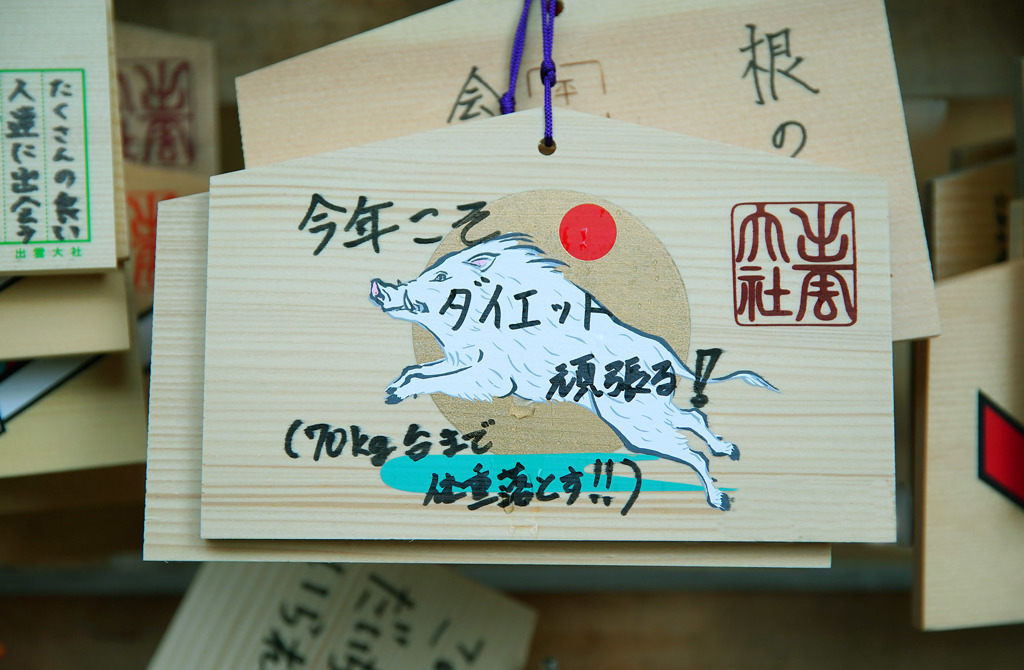 たくさんの良い
人達に出会う
出雲大社
根の
会
今年こそ
ダイエット
頑張る!!
(70kg台まで
体重落とす!!)
出雲
大社